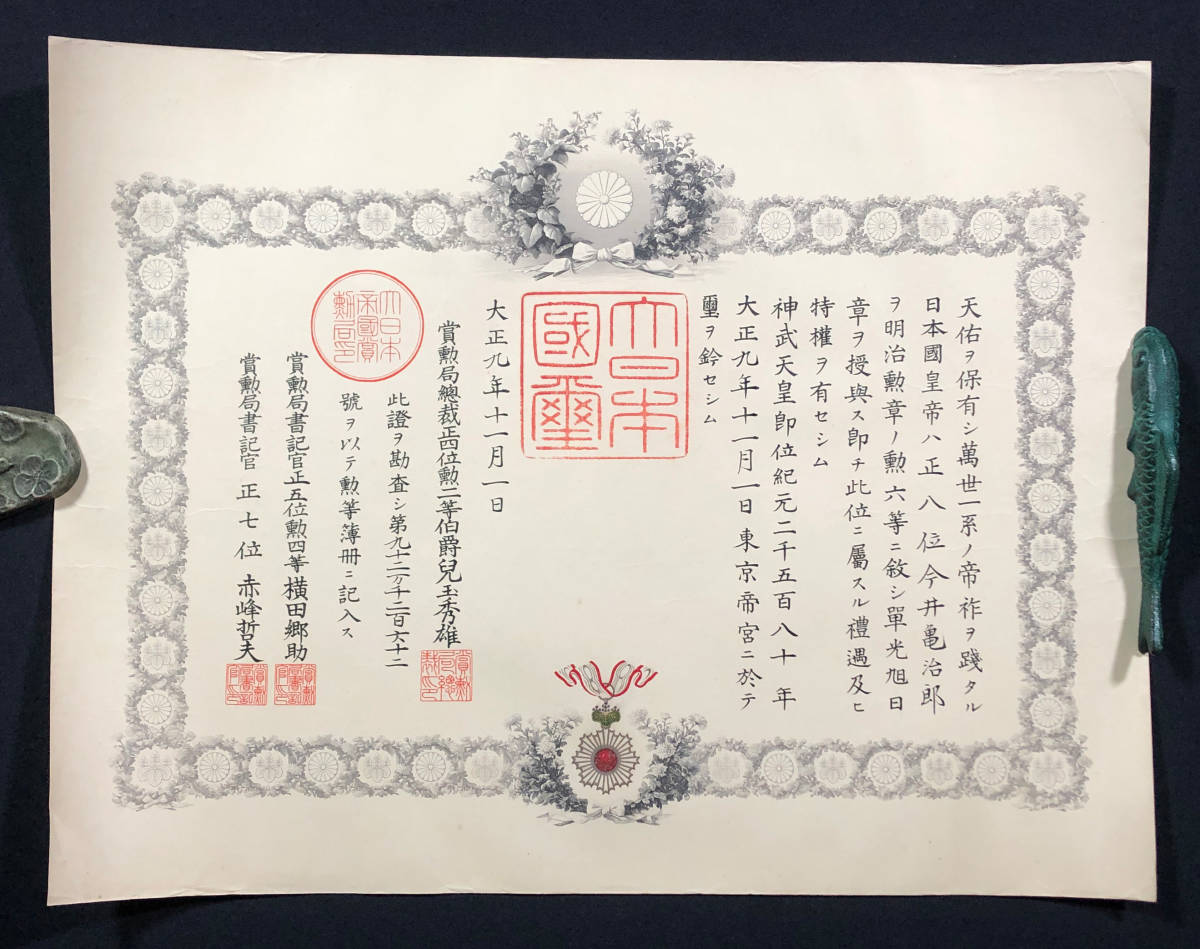 天佑ヲ保有シ萬世一系ノ帝祚ヲ踐タル
日本國皇帝ハ正八位今井亀治郎
ヲ明治勲章ノ勲六等ニ敘シ單光旭日
章ヲ授與ス即チ此位ニ屬スル禮遇及ヒ
特權ヲ有セシム
神武天皇即位紀元二千五百八十年
大正九年十一月一日東京帝宮ニ於テ
璽ヲ鈐セシム
大日本
國璽
大正九年十一月一日
賞勲局總裁正四位勲二等伯爵兒玉秀雄
賞勲局總裁印
此證ヲ勘査シ第九十二万千二百六十二
號ヲ以テ勲等簿冊ニ記入ス
大日本
帝國賞
勲局印
賞勲局書記官正五位勲四等横田郷助
賞勲局書記官正七位赤峰哲夫